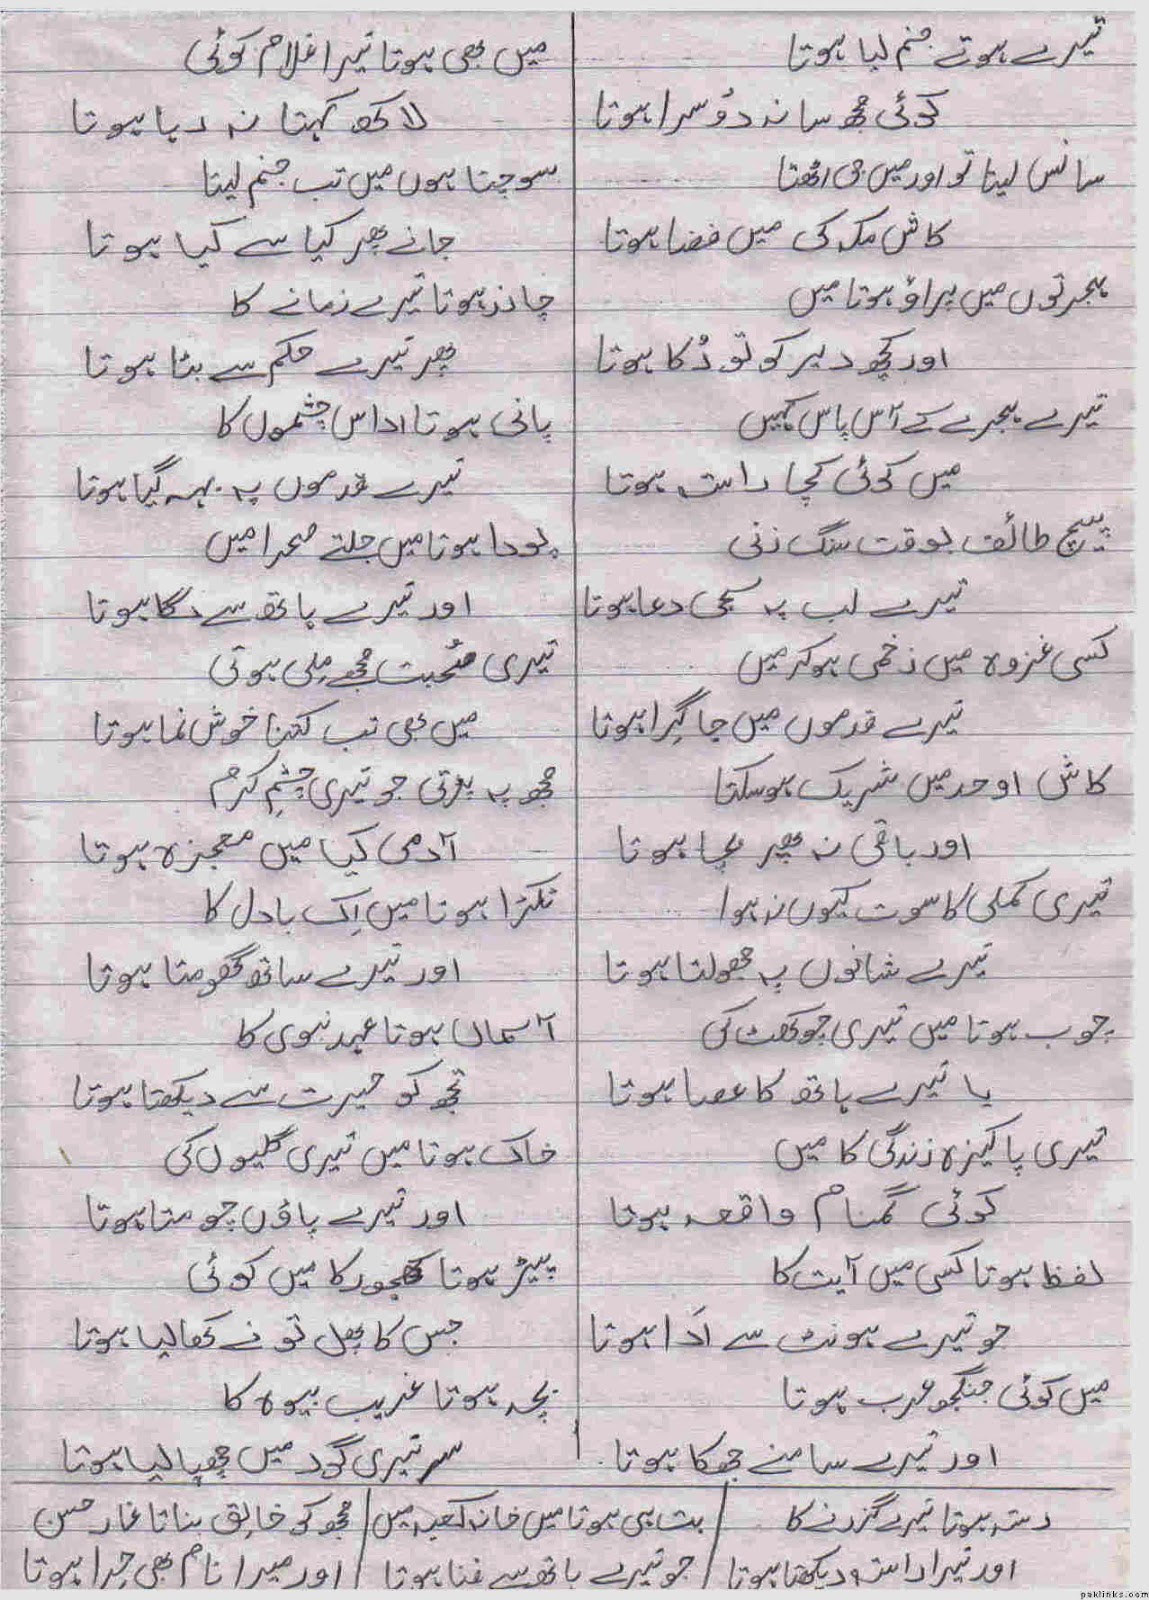 تیرے ہوتے جنم لیا ہوتا
کوئی مجھ سا نہ دُوسرا ہوتا
سانس لیتا تو اور میں جی اٹھتا
کاش مکہ کی میں فضا ہوتا
ہجرتوں میں پڑاؤ ہوتا میں
اور کچھ دیر کو تو رُکا ہوتا
تیرے حجرے کے آس پاس کہیں
میں کوئی کچا راستہ ہوتا
بیچ طائف بوقت سنگ زنی
تیرے لب پہ سجی دعا ہوتا
کسی غزوہ میں زخمی ہو کر میں
تیرے قدموں میں جا گِرا ہوتا
کاش اوحد میں شریک ہو سکتا
اور باقی نہ پھر بچا ہوتا
تیری کملی کا سوت کیوں نہ ہوا
تیرے شانوں پہ جھولتا ہوتا
چوب ہوتا میں تیری چوکھٹ کی
یا تیرے ہاتھ کا عصا ہوتا
تیری پاکیزہ زندگی کا میں
کوئی گمنام واقعہ ہوتا
لفظ ہوتا کسی میں آیت کا
جو تیرے ہونٹ سے اَدا ہوتا
میں کوئی جنگجو عرب ہوتا
اور تیرے سامنے جھکا ہوتا
میں بھی ہوتا تیرا غلام کوئی
لاکھ کہتا نہ رہا ہوتا
سوچتا ہوں میں تب جنم لیتا
جانے پھر کیا سے کیا ہوتا
چاند ہوتا تیرے زمانے کا
پھر تیرے حکم سے بٹا ہوتا
پانی ہوتا اداس چشموں کا
تیرے قدموں پہ بہہ گیا ہوتا
پودا ہوتا میں جلتے صحرا میں
اور تیرے ہاتھ سے لگا ہوتا
تیری صُحبت مجھے مِلی ہوتی
میں بھی تب کتنا خوش نما ہوتا
مجھ پہ پڑتی جو تیری چشمِ کرم
آدمی کیا میں معجزہ ہوتا
ٹکڑا ہوتا میں اِک بادل کا
اور تیرے ساتھ گھومتا ہوتا
آسماں ہوتا عہد نبوی کا
تجھ کو حیرت سے دیکھتا ہوتا
خاک ہوتا میں تیری گلیوں کی
اور تیرے پاؤں چومتا ہوتا
پیڑ ہوتا کھجور کا میں کوئی
جس کا پھل تو نے کھا لیا ہوتا
بچہ ہوتا غریب بیوہ کا
سر تیری گود میں چھپا لیا ہوتا
رستہ ہوتا تیرے گزرنے کا
اور تیرا راستہ دیکھتا ہوتا
بت ہی ہوتا میں خانہ کعبہ میں
جو تیرے ہاتھ سے فنا ہوتا
مجھ کو خالق بناتا غار حسن
اور میرا نام بھی حِرا ہوتا
paklinks.com